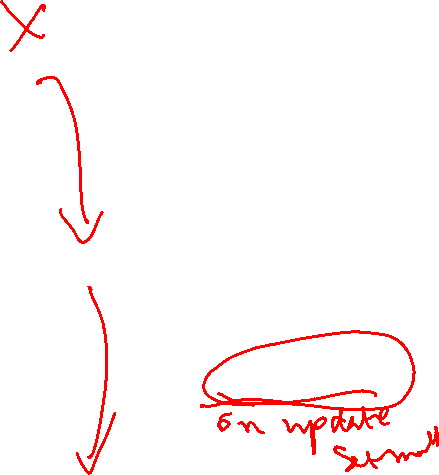 X
on update
Set null